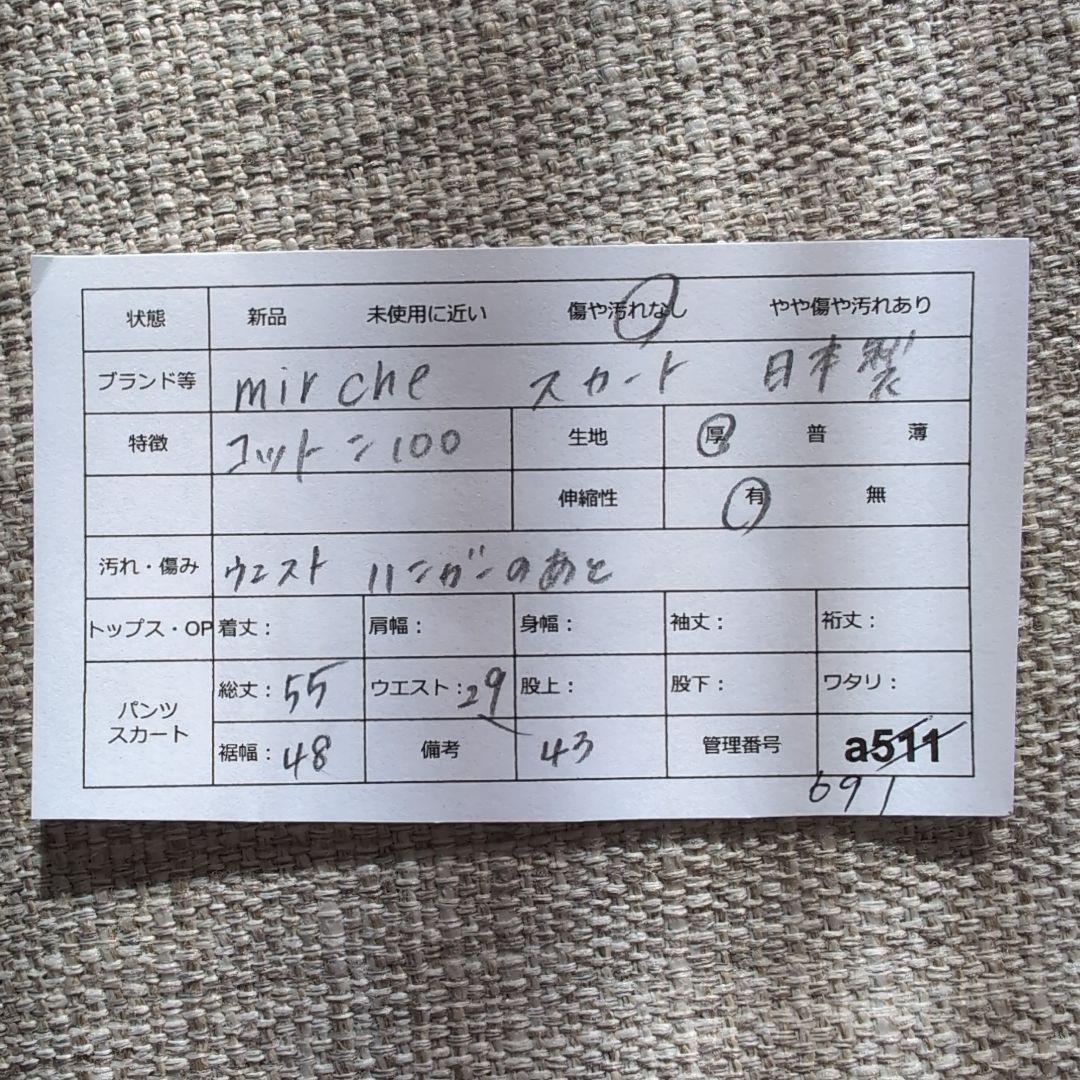 状態 新品 未使用に近い 傷や汚れなし やや傷や汚れあり
ブランド等 mir che スカート 日本製
特徴 コットン100 生地 厚 普 薄
伸縮性 有 無
汚れ・傷み ウエスト ハンガーのあと
トップス・OP 着丈： 肩幅： 身幅： 袖丈： 裄丈：
パンツ スカート 総丈：55 ウエスト：29 股上： 股下： ワタリ：
裾幅：48 備考 43 管理番号 a511
691